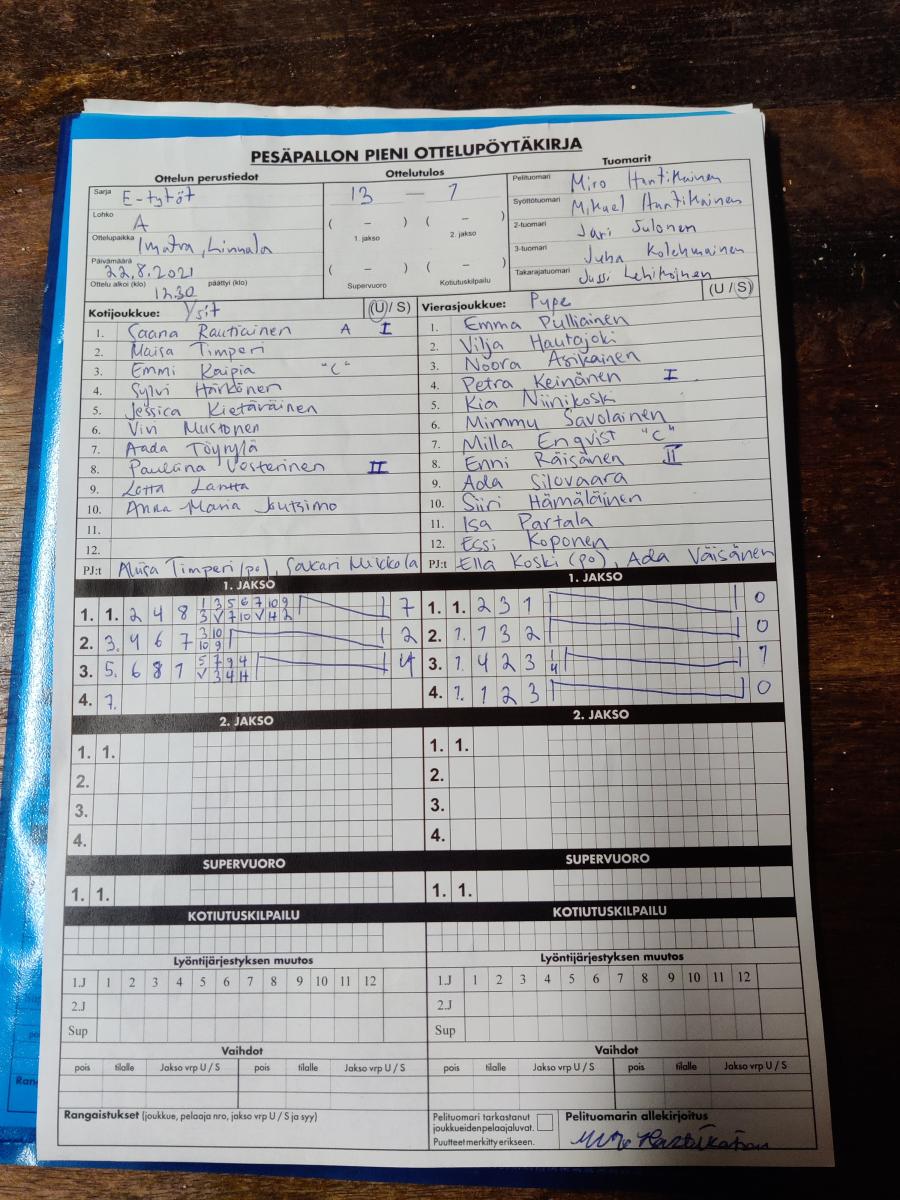 PESÄPALLON PIENI OTTELUPÖYTÄKIRJA
Ottelun perustiedot
Ottelutulos
Tuomarit
Sarja E-tytöt
Lohko A
Ottelupaikka Imatra, Linnala
Päivämäärä 22.8.2021
Ottelu alkoi (klo) 12.30 päättyi (klo)
13 — 1
( – ) ( – )
1. jakso 2. jakso
( – ) ( – )
Supervuoro Kotiutuskilpailu
Pelituomari Miro Hartikainen
Syöttötuomari Mikael Hartikainen
2-tuomari Jari Julonen
3-tuomari Juha Kolehmainen
Takarajatuomari Jussi Lehikoinen
Kotijoukkue: Ysit (U / S)
1. Saana Rautiainen A I
2. Maisa Timperi
3. Emmi Kaipia "C"
4. Sylvi Härkönen
5. Jessica Kietäväinen
6. Vivi Mustonen
7. Aada Töyrylä
8. Pauliina Vesterinen II
9. Lotta Lantta
10. Anna Maria Joutsimo
11.
12.
PJ:t Aluisa Timperi (po), Sakari Mikkola
Vierasjoukkue: Pype (U / S)
1. Emma Pulliainen
2. Vilja Hautojoki
3. Noora Asikainen
4. Petra Keinänen I
5. Kia Niinikoski
6. Mimmu Savolainen
7. Milla Enqvist "C"
8. Enni Räisänen II
9. Ada Silovaara
10. Siiri Hämäläinen
11. Isa Partala
12. Essi Koponen
PJ:t Ella Koski (po), Ada Väisänen
1. JAKSO
1. 1. 2 4 8 1 3 5 6 7 10 9 7
3 V 7 10 V H 2
2. 3. 4 6 7 3 10 2
10 9
3. 5. 6 8 1 5 7 9 4 4
V 3 4 H
4. 7.
1. JAKSO
1. 1. 2 3 1 0
2. 1. 1 3 2 0
3. 1. 4 2 3 1 1
4
4. 1. 1 2 3 0
2. JAKSO
1. 1.
2.
3.
4.
2. JAKSO
1. 1.
2.
3.
4.
SUPERVUORO
1. 1.
SUPERVUORO
1. 1.
KOTIUTUSKILPAILU
KOTIUTUSKILPAILU
Lyöntijärjestyksen muutos
1.J 1 2 3 4 5 6 7 8 9 10 11 12
2.J
Sup
Lyöntijärjestyksen muutos
1.J 1 2 3 4 5 6 7 8 9 10 11 12
2.J
Sup
Vaihdot
pois tilalle Jakso vrp U / S pois tilalle Jakso vrp U / S
Vaihdot
pois tilalle Jakso vrp U / S pois tilalle Jakso vrp U / S
Rangaistukset (joukkue, pelaaja nro, jakso vrp U / S ja syy)
Pelituomari tarkastanut
joukkueidenpelaajaluvat.
Puutteet merkitty erikseen.
Pelituomarin allekirjoitus
Miro Hartikainen